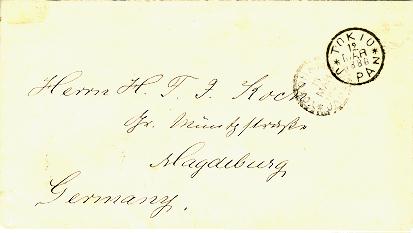 TOKIO
19
MAR
1886
JAPAN
Herrn H. T. J. Koch
Gr. Münzstraße
Magdeburg
Germany.